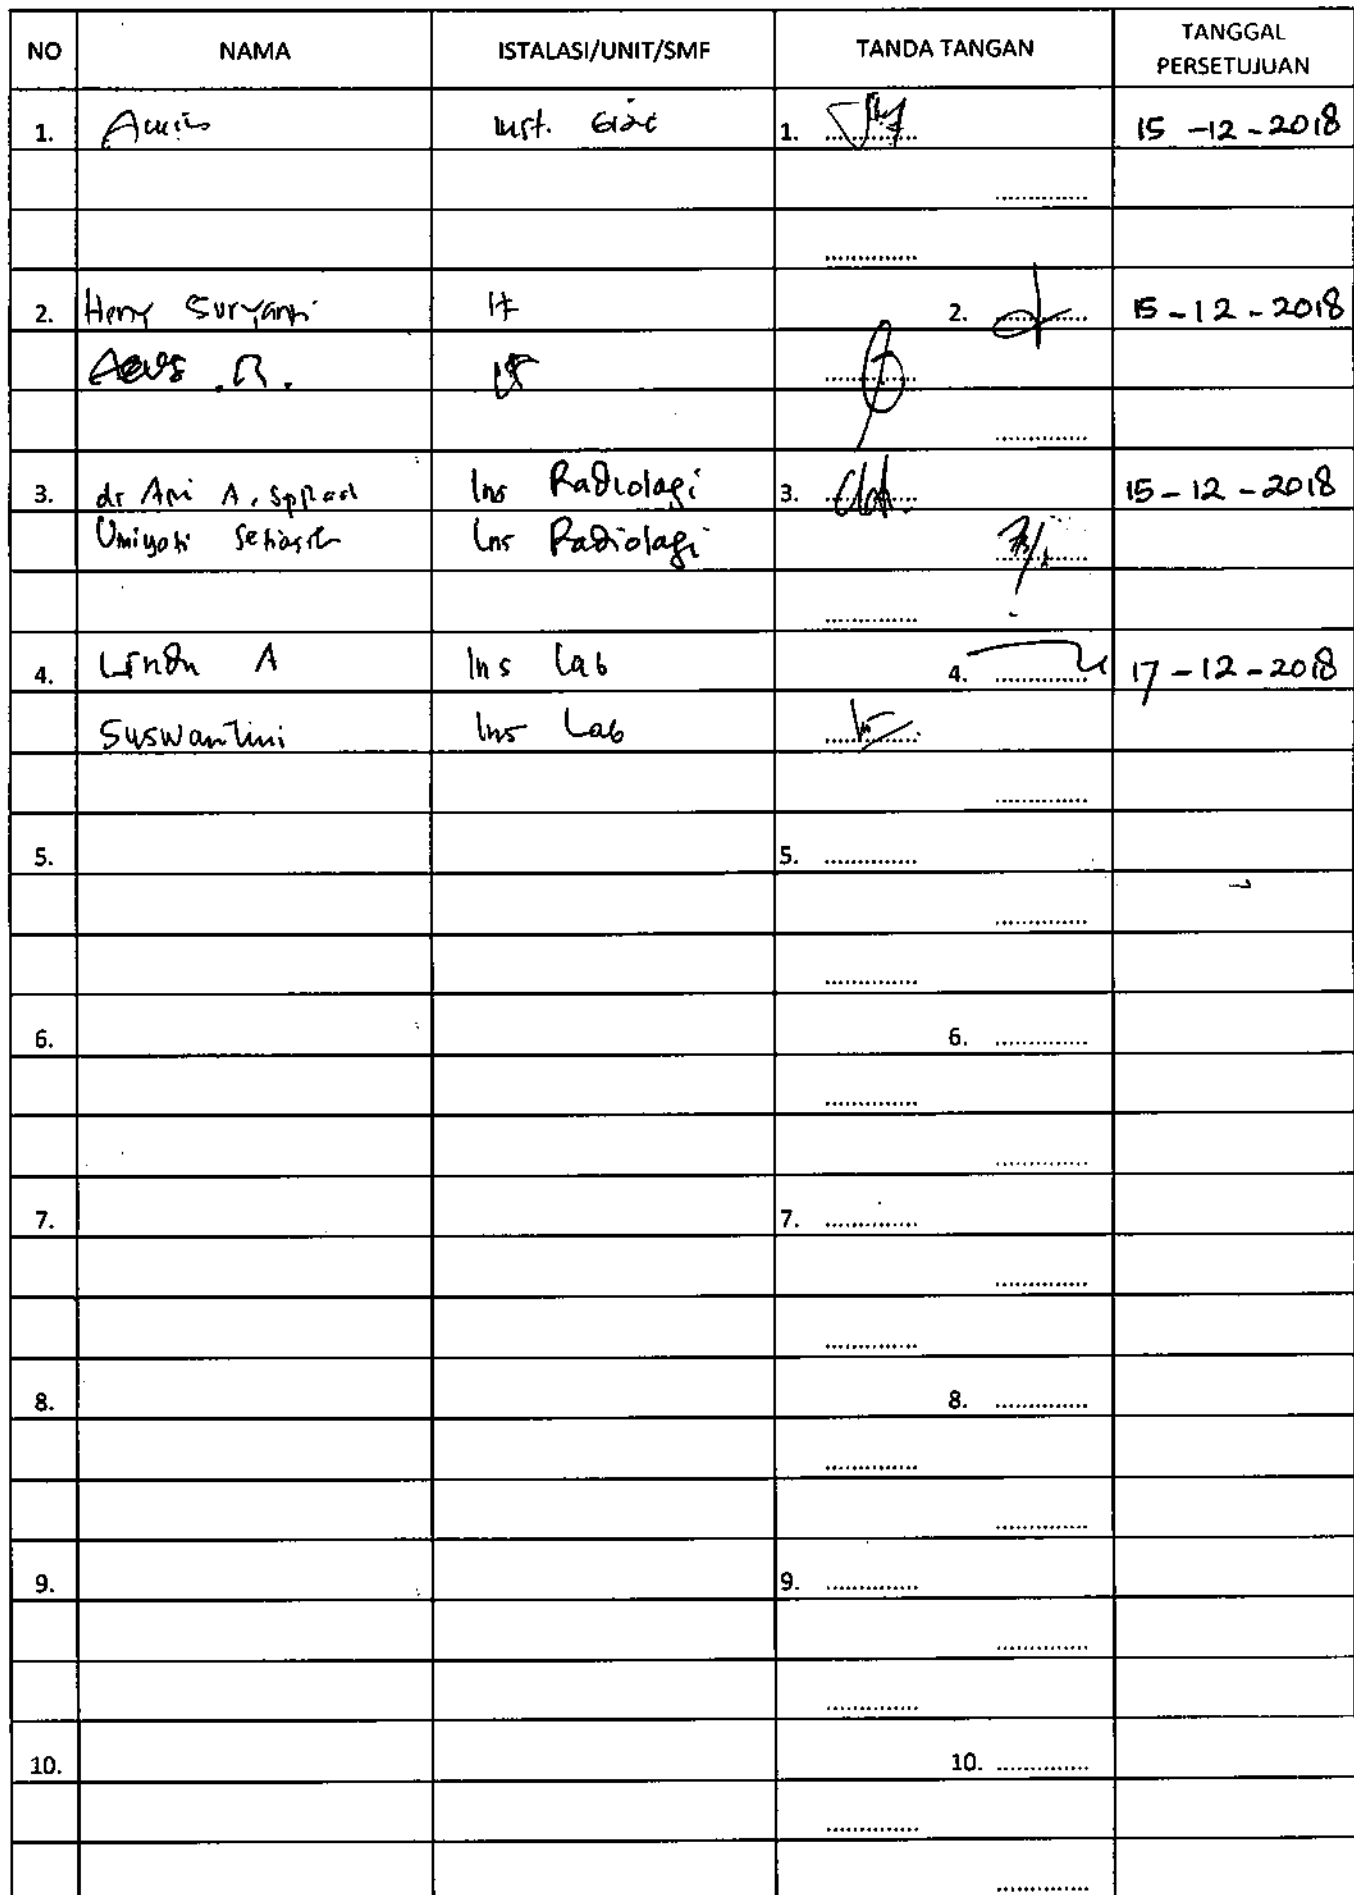 NO NAMA ISTALASI/UNIT/SMF TANDA TANGAN TANGGAL PERSETUJUAN
1. Inst. Gizi 1. 15-12-2018
2. Heny Suryanti IF 2. 15-12-2018
R.
3. dr Ari A. SpRad Ins Radiologi 3. 15-12-2018
Umiyati Setiasih Ins Radiologi
4. Linda A Ins Lab 4. 17-12-2018
Suswantini Ins Lab
5. 5.
6. 6.
7. 7.
8. 8.
9. 9.
10. 10.